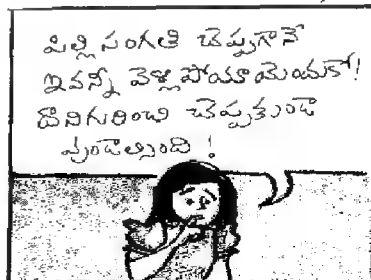 పిల్లి సంగతి చెప్పగానే
ఇవన్నీ వెళ్లిపోయాయెందుకో!
దానిగురించి చెప్పకుండా
వుండాల్సింది !